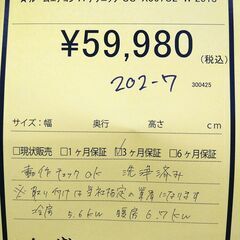 ¥59,980
(税込)
202-7
300425
サイズ:幅 奥行 高さ cm
□現状販売 □1ヶ月保証 ☑3ヶ月保証 □6ヶ月保証
動作チェックOK 洗浄済み
※取り付けは当社指定の業者になります
冷房 5.6kw 暖房 6.7kw